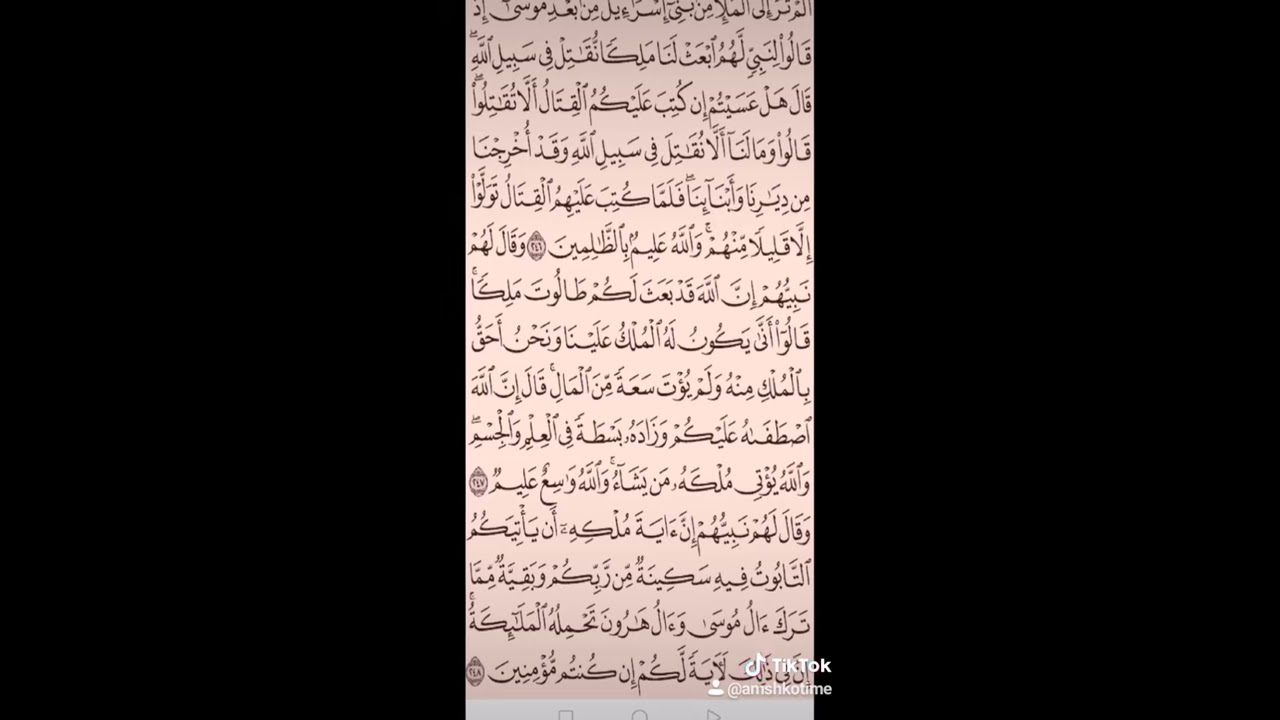 أَلَمْ تَرَ إِلَى ٱلْمَلَإِ مِنۢ بَنِىٓ إِسْرَٰٓءِيلَ مِنۢ بَعْدِ مُوسَىٰٓ إِذْ
قَالُوا۟ لِنَبِىٍّ لَّهُمُ ٱبْعَثْ لَنَا مَلِكًا نُّقَـٰتِلْ فِى سَبِيلِ ٱللَّهِ ۖ
قَالَ هَلْ عَسَيْتُمْ إِن كُتِبَ عَلَيْكُمُ ٱلْقِتَالُ أَلَّا تُقَـٰتِلُوا۟ ۖ
قَالُوا۟ وَمَا لَنَآ أَلَّا نُقَـٰتِلَ فِى سَبِيلِ ٱللَّهِ وَقَدْ أُخْرِجْنَا
مِن دِيَـٰرِنَا وَأَبْنَآئِنَا ۖ فَلَمَّا كُتِبَ عَلَيْهِمُ ٱلْقِتَالُ تَوَلَّوْا۟
إِلَّا قَلِيلًا مِّنْهُمْ ۗ وَٱللَّهُ عَلِيمٌۢ بِٱلظَّـٰلِمِينَ ٢٤٦ وَقَالَ لَهُمْ
نَبِيُّهُمْ إِنَّ ٱللَّهَ قَدْ بَعَثَ لَكُمْ طَالُوتَ مَلِكًا ۚ
قَالُوٓا۟ أَنَّىٰ يَكُونُ لَهُ ٱلْمُلْكُ عَلَيْنَا وَنَحْنُ أَحَقُّ
بِٱلْمُلْكِ مِنْهُ وَلَمْ يُؤْتَ سَعَةً مِّنَ ٱلْمَالِ ۚ قَالَ إِنَّ ٱللَّهَ
ٱصْطَفَىٰهُ عَلَيْكُمْ وَزَادَهُۥ بَسْطَةً فِى ٱلْعِلْمِ وَٱلْجِسْمِ ۖ
وَٱللَّهُ يُؤْتِى مُلْكَهُۥ مَن يَشَآءُ ۚ وَٱللَّهُ وَٰسِعٌ عَلِيمٌ ٢٤٧
وَقَالَ لَهُمْ نَبِيُّهُمْ إِنَّ ءَايَةَ مُلْكِهِۦٓ أَن يَأْتِيَكُمُ
ٱلتَّابُوتُ فِيهِ سَكِينَةٌ مِّن رَّبِّكُمْ وَبَقِيَّةٌ مِّمَّا
تَرَكَ ءَالُ مُوسَىٰ وَءَالُ هَـٰرُونَ تَحْمِلُهُ ٱلْمَلَـٰٓئِكَةُ ۚ
إِنَّ فِى ذَٰلِكَ لَـَٔايَةً لَّكُمْ إِن كُنتُم مُّؤْمِنِينَ ٢٤٨
TikTok
@amshkotime